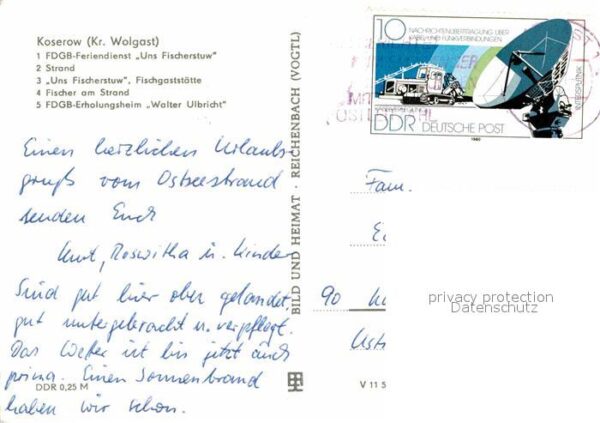 Koserow (Kr. Wolgast)
1 FDGB-Feriendienst „Uns Fischerstuw"
2 Strand
3 „Uns Fischerstuw", Fischgaststätte
4 Fischer am Strand
5 FDGB-Erholungsheim „Walter Ulbricht"
Einen herzlichen Urlaubs-
gruß vom Ostseestrand
senden Euch
Kurt, Roswitha u. Kinder
Sind gut hier oben gelandet,
gut untergebracht u. verpflegt.
Das Wetter ist bis jetzt auch
prima. Einen Sonnenbrand
haben wir schon.
DDR 0,25 M
BILD UND HEIMAT · REICHENBACH (VOGTL)
V 11 5
10 NACHRICHTENÜBERTRAGUNG ÜBER
KABEL-UND FUNKVERBINDUNGEN
INTERSPUTNIK
DDR DEUTSCHE POST
1980
Fam.
90
privacy protection
Datenschutz